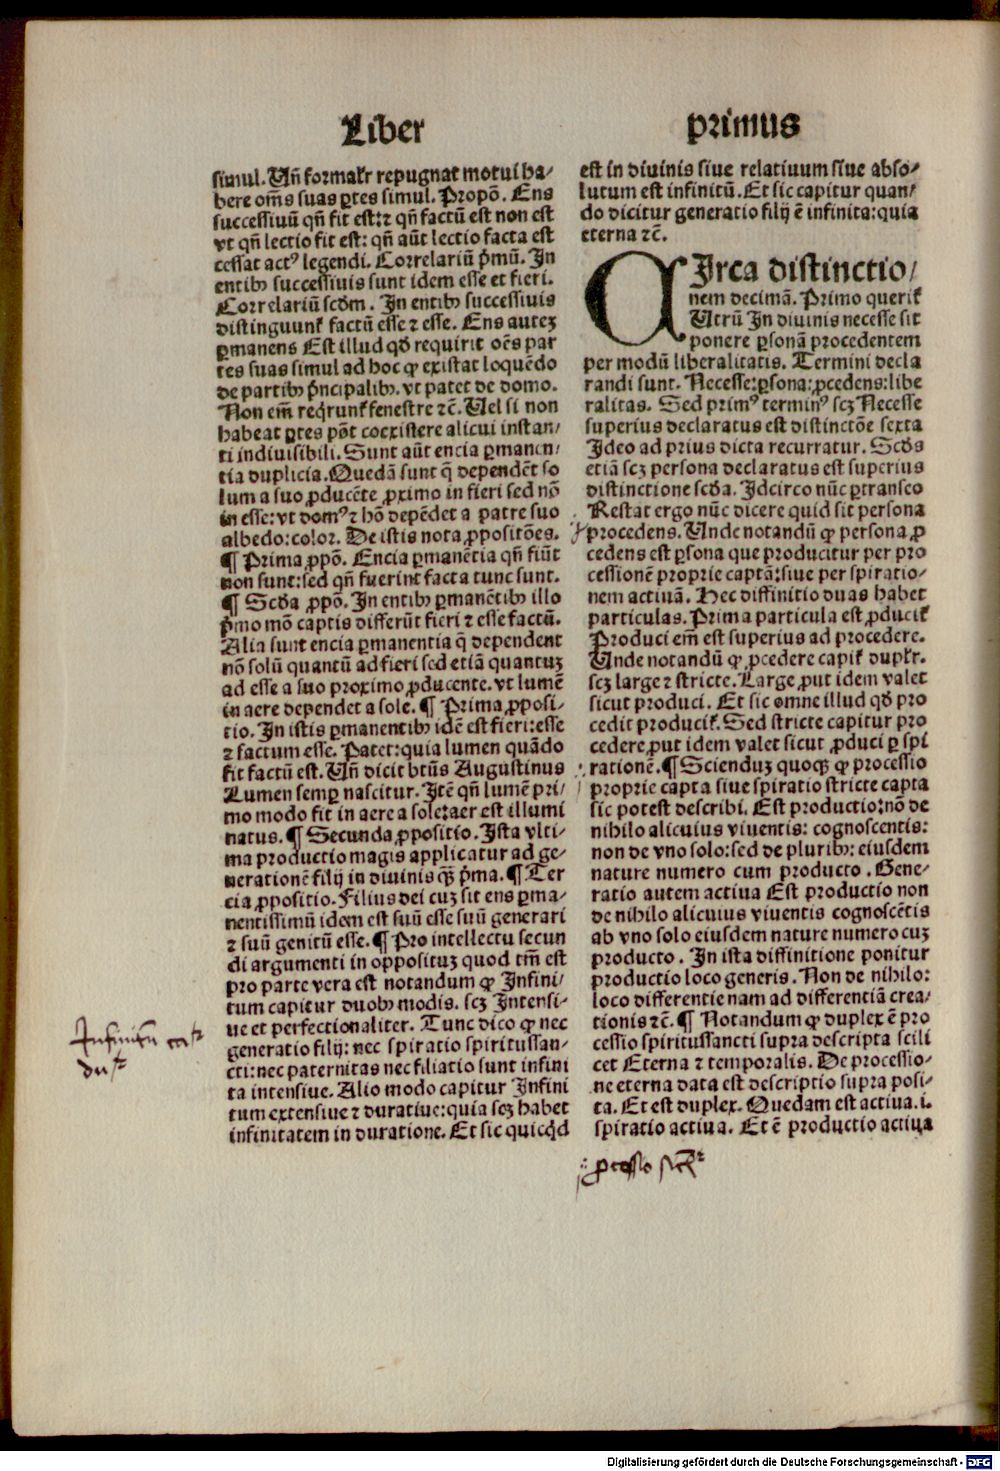 Liber primus
simul. Uñ formalr̃ repugnat motui ha⸗
bere om̃s suas ꝑtes simul. Propõ. Ens
successiuũ qñ fit est: ⁊ qñ factũ est non est
vt qñ lectio fit est: qñ aũt lectio facta est
cessat actꝰ legendi. Correlariũ p̃mũ. In
entibꝫ successiuis sunt idem esse et fieri.
Correlariũ scđm. In entibꝫ successiuis
distinguunt̃ factũ esse ⁊ esse. Ens autez
ꝑmanens Est illud qđ requirit oẽs par
tes suas simul ad hoc ꝙ existat loquẽdo
de partibꝫ p̃ncipalibꝫ. vt patet de domo.
Non em̃ reqͥrunt̃ fenestre ⁊c̃. Uel si non
habeat ꝑtes põt coexistere alicui instan⸗
ti indiuisibili. Sunt aũt encia ꝑmanen⸗
tia duplicia. Quedã sunt q̃ dependẽt so
lum a suo ꝓducẽte ꝓximo in fieri sed nõ
in esse: vt domꝰ ⁊ hõ depẽdet a patre suo
albedo: color. De istis nota ꝓpositões.
¶ Prima ꝓpõ. Encia ꝑmanẽtia qñ fiũt
non sunt: sed qñ fuerint facta tunc sunt.
¶ Scđa ꝓpõ. In entibꝫ ꝑmanẽtibꝫ illo
p̃mo mõ captis differũt fieri ⁊ esse factũ.
Alia sunt encia ꝑmanentia q̃ dependent
nõ solũ quantũ ad fieri sed etiã quantuz
ad esse a suo proximo ꝓducente. vt lumẽ
in aere dependet a sole. ¶ Prima ꝓposi⸗
tio. In istis ꝑmanentibꝫ idẽ est fieri: esse
⁊ factum esse. Patet: quia lumen quãdo
fit factũ est. Uñ dicit btũs Augustinus
Lumen semꝑ nascitur. Itẽ qñ lumẽ pri⸗
mo modo fit in aere a sole: aer est illumi
natus. ¶ Secunda ꝓpositio. Ista vlti⸗
ma productio magis applicatur ad ge⸗
nerationẽ filij in diuinis qꝫ̃ p̃ma. ¶ Ter
cia ꝓpositio. Filius dei cuz sit ens ꝑma⸗
nentissimũ idem est suũ esse suũ generari
⁊ suũ genitũ esse. ¶ Pro intellectu secun
di argumenti in opposituz quod tm̃ est
pro parte vera est notandum ꝙ Infini⸗
tum capitur duobꝫ modis. scz Intensi⸗
ue et perfectionaliter. Tunc dico ꝙ nec
generatio filij: nec spiratio spiritussan⸗
cti: nec paternitas nec filiatio sunt infini
ta intensiue. Alio modo capitur Infini
tum extensiue ⁊ duratiue: quia scz habet
infinitatem in duratione. Et sic quicqͥd
est in diuinis siue relatiuum siue abso⸗
lutum est infinitũ. Et sic capitur quan⸗
do dicitur generatio filij ẽ infinita: quia
eterna ⁊c̃.
CIrca distinctio⸗
nem decimã. Primo querit̃
Utrũ In diuinis necesse sit
ponere ꝑsonã procedentem
per modũ liberalitatis. Termini decla
randi sunt. Necesse: ꝑsona: ꝓcedens: libe
ralitas. Sed primꝰ terminꝰ scz Necesse
superius declaratus est distinctõe sexta
Ideo ad prius dicta recurratur. Scđs
etiã scz persona declaratus est superius
distinctione scđa. Idcirco nũc ꝑtranseo
Restat ergo nũc dicere quid sit persona
procedens. Unde notandũ ꝙ persona ꝓ
cedens est ꝑsona que producitur per pro
cessionẽ proprie captã: siue per spiratio⸗
nem actiuã. Hec diffinitio duas habet
particulas. Prima particula est ꝓducit̃
Produci em̃ est superius ad procedere.
Unde notandũ ꝙ ꝓcedere capit̃ duplr̃.
scz large ⁊ stricte. Large ꝓut idem valet
sicut produci. Et sic omne illud qđ pro
cedit producit̃. Sed stricte capitur pro
cedere ꝓut idem valet sicut ꝓduci ꝑ spi
rationẽ. ¶ Scienduz quoqꝫ ꝙ processio
proprie capta siue spiratio stricte capta
sic potest describi. Est productio: nõ de
nihilo alicuius viuentis: cognoscentis:
non de vno solo: sed de pluribꝫ: eiusdem
nature numero cum producto. Gene⸗
ratio autem actiua Est productio non
de nihilo alicuius viuentis cognoscẽtis
ab vno solo eiusdem nature numero cuz
producto. In ista diffinitione ponitur
productio loco generis. Non de nihilo:
loco differentie nam ad differentiã crea⸗
tionis ⁊c̃. ¶ Notandum ꝙ duplex ẽ pro
cessio spiritussancti supra descripta scili
cet Eterna ⁊ temporalis. De processio⸗
ne eterna data est descriptio supra posi⸗
ta. Et est duplex. Quedam est actiua. i.
spiratio actiua. Et ẽ productio actiua
Digitalisierung gefördert durch die Deutsche Forschungsgemeinschaft - DFG